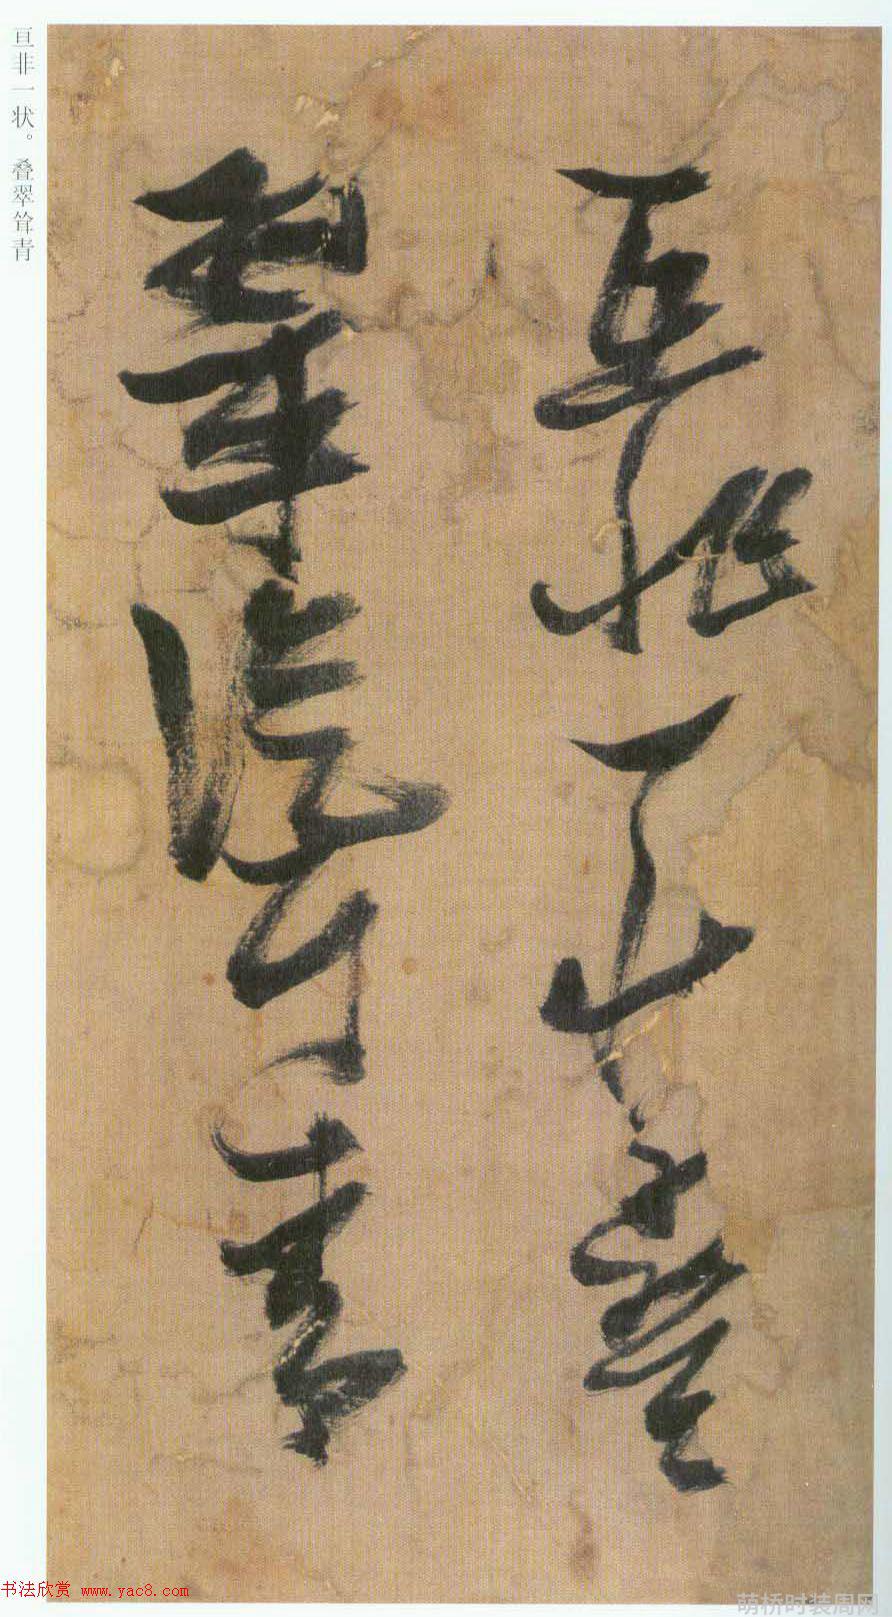 亘非一狀疊
翠聳青
亘非一状。叠翠耸青
书法欣赏 www.yac8.com
萌桥时装周网